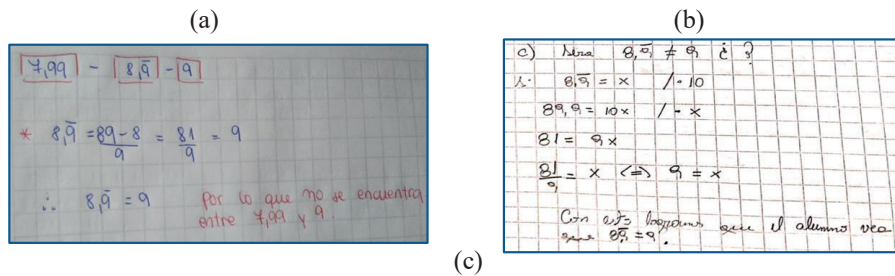 (a)
7,99 - 8,9̅ - 9
* 8,9̅ = 89-8/9 = 81/9 = 9
∴ 8,9̅ = 9 Por lo que no se encuentra
entre 7,99 y 9.
(b)
c) Será 8,9̅ ≠ 9 ¿ ?
8,9̅ = x / · 10
89,9 = 10x / - x
81 = 9x
81/9 = x <=> 9 = x
Con esto logramos que el alumno vea
que 8,9̅ = 9.
(c)